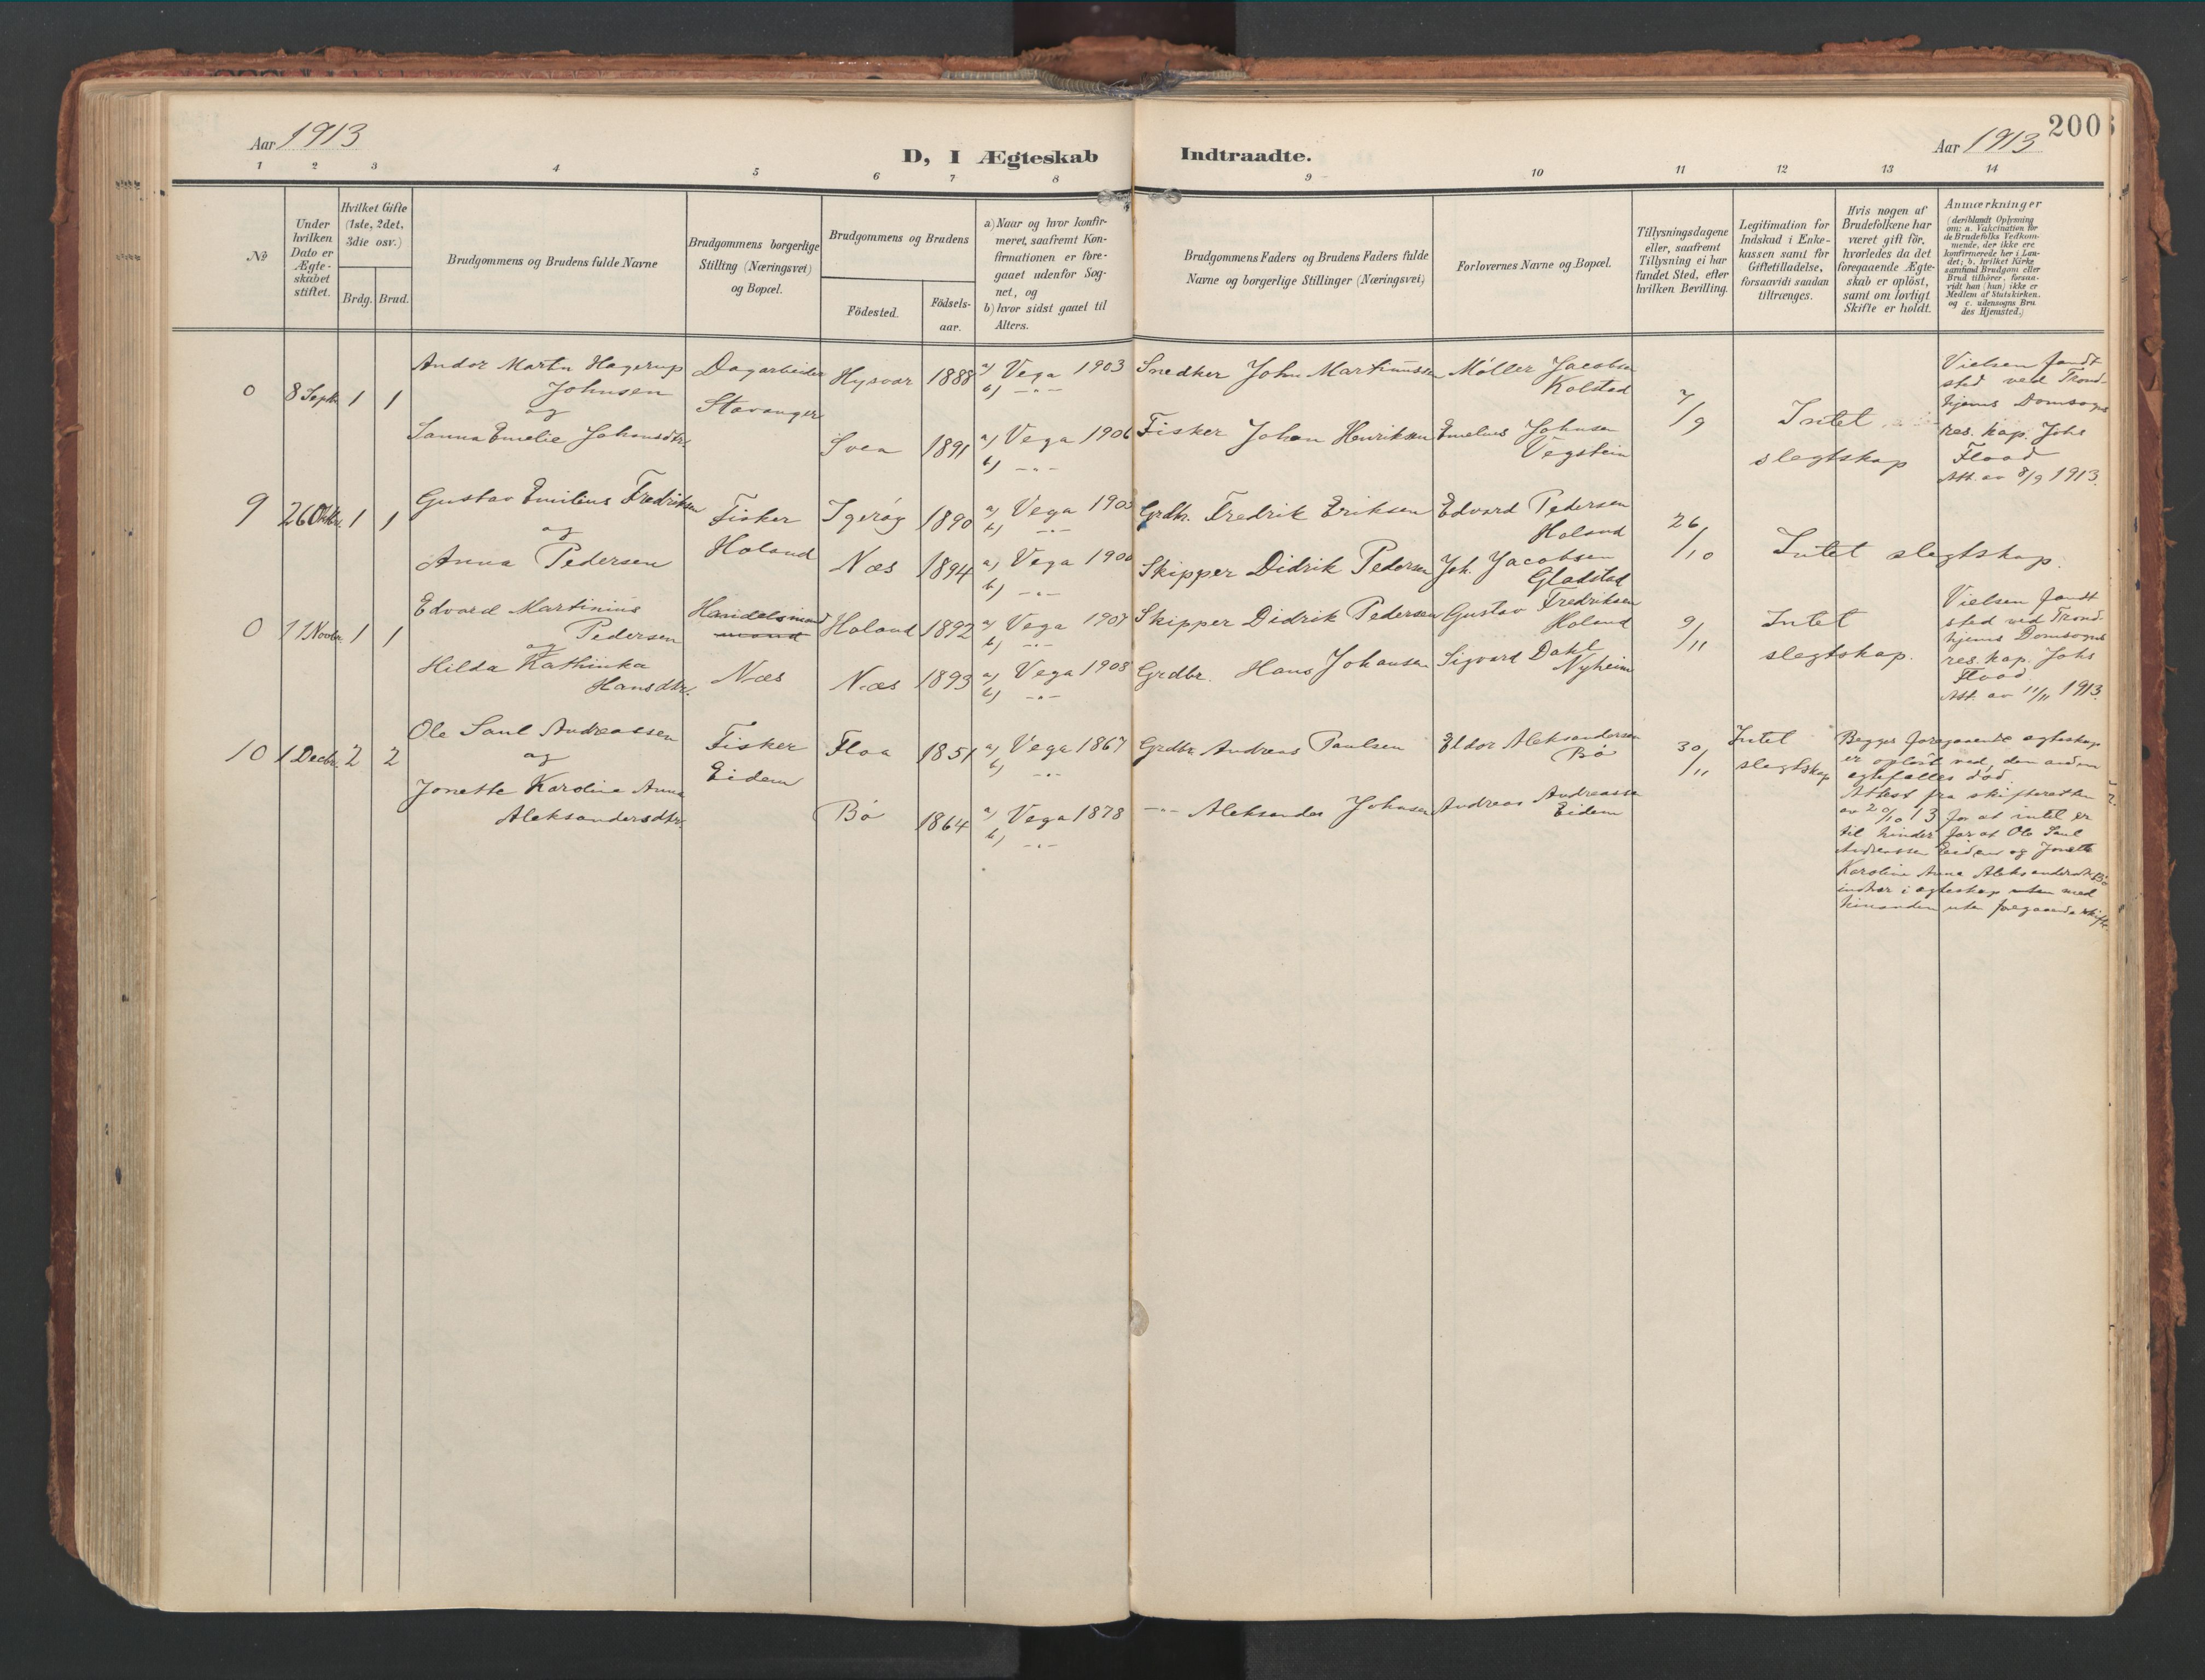 200
Aar 1913
D, I Ægteskab Indtraadte.
Aar 1913
1 2 3 4 5 6 7 8 9 10 11 12 13 14
№
Under
hvilken
Dato er
Ægte-
skabet
stiftet.
Hvilket Gifte
(1ste, 2det,
3die osv.)
Brdg. Brud.
Brudgommens og Brudens fulde Navne
Brudgommens borgerlige
Stilling (Næringsvei)
og Bopæl.
Brudgommens og Brudens
Födested.
Födsels-
aar.
a) Naar og hvor konfir-
meret, saafremt Kon-
firmationen er fore-
gaaet udenfor Sog-
net, og
b) hvor sidst gaaet til
Alters.
Brudgommens Faders og Brudens Faders fulde
Navne og borgerlige Stillinger (Næringsvei)
Forlovernes Navne og Bopæl.
Tillysningsdagene
eller, saafremt
Tillysning ei har
fundet Sted, efter
hvilken Bevilling.
Legitimation for
Indskud i Enke-
kassen samt for
Giftetilladelse,
forsaavidt saadan
tiltrænges.
Hvis nogen af
Brudefolkene har
været gift för,
hvorledes da det
foregaaende Ægte-
skab er oplöst,
samt om lovligt
Skifte er holdt.
Anmærkninger
(deriblandt Oplysning
om: a. Vakcination for
de Brudefolks Vedkom-
mende, der ikke ere
konfirmerede her i Lan-
det; b. hvilket Kirke
samfund Brudgom eller
Brud tilhörer, forsaa-
vidt han (hun) ikke er
Medlem af Statskirken,
og c. udensogns Bru
des Hjemsted.)
0
8 Sept.
1
1
Andor Martn Hagerup
Johnsen
og
Sanna Emelie Johansdtr.
Dagarbeider
Stavanger
Hysvær 1888
Svea 1891
a) Vega 1903
b) -"-
a) Vega 1906
b) -"-
Snedker John Martinussen
Fisker Johan Henriksen
Møller Jacobsen
Kolstad
Emelius Johnsen
Vegstein
7/9
Intet
slegtskap
Vielsen fandt
sted ved Trond-
hjems Domsogns
res. kap. Johs
Flood
Att. av 8/9 1913.
9
26 Oktbr.
1
1
Gustav Emilius Fredriksen
og
Anna Pedersen
Fisker
Holand
Igerøg 1890
Næs 1894
a) Vega 1905
b) -"-
a) Vega 1908
b) -"-
Grdbr. Fredrik Eriksen
Skipper Didrik Pedersen
Edvard Pedersen
Holand
Joh. Jacobsen
Gladstad
26/10
Intet slegtskap.
0
11 Novbr.
1
1
Edvard Martinius
Pedersen
og
Hilda Kathinka
Hansdtr.
Handelsmand
mand
Næs
Holand 1892
Næs 1893
a) Vega 1907
b) -"-
a) Vega 1908
b) -"-
Skipper Didrik Pedersen
Grdbr. Hans Johansen
Gustav Fredriksen
Holand
Sigvard Dahl
Nyheim
9/11
Intet
slegtskap.
Vielsen fandt
sted ved Trond-
hjems Domsogns
res. kap. Johs
Flood
Att. av 11/11 1913.
10
1 Decbr.
2
2
Ole Saul Andreassen
og
Jonette Karoline Anna
Aleksandersdtr.
Fisker
Eidem
Floa 1851
Bø 1864
a) Vega 1867
b) -"-
a) Vega 1878
b) -"-
Grdbr. Andreas Paulsen
-"- Aleksander Johnsen
Eldor Aleksandersen
Bø
Andreas Andreassen
Eidem
30/11
Intet
slegtskap
Begges foregaaende egteskap
er opløst ved den anden
egtefælles død.
Attest fra skifteretten
av 20/10 13 for at intet er
til hinder for at Ole Saul
Andreassen Eidem og Jonette
Karoline Anna Aleksandersdtr. Bø
indtrær i egteskap uten med
hinanden uten foregaaende skifte.